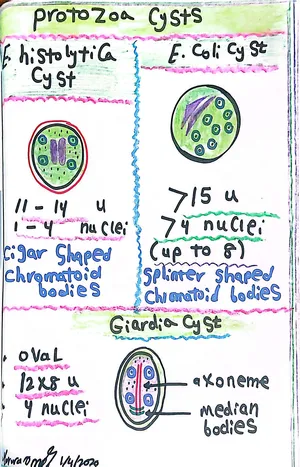 protozoa cysts
E. histolytica
Cyst
11 - 14 u
1 - 4 nuclei
Cigar shaped
chromatoid
bodies
E. Coli Cyst
>15 u
>4 nuclei
(up to 8)
Splinter shaped
chromatoid bodies
Giardia Cyst
• oval
• 12x8 u
• 4 nuclei
axoneme
median
bodies
1/4/2020